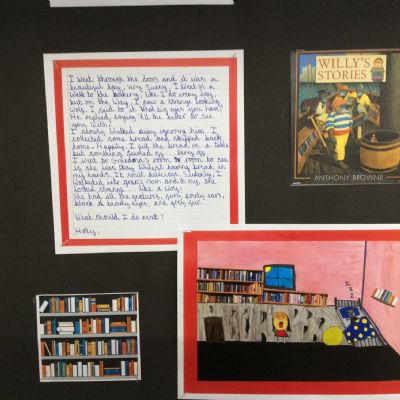 I went through the doors and it was a
beautiful day, very sunny. I went on a
walk to the bakery, like I do every day,
but on the way, I saw a strange looking
wolf. I said to it what big eyes you have!
He replied, saying 'All the better to see
you with.'
I slowly walked away ignoring him. I
collected some bread and skipped back
home. Happily, I put the bread on a table
but something seemed off... very off...
I went to Grandma's room to see
is she was okay whilst having bread in
my hands. It smelt delicious. Suddenly, I
walked into gran's room and my, she
looked strange... like a wolf!
She had all the features, such pointy ears,
black beady eyes, and grey fur.
What should I do next?
Holly.
WILLY'S
STORIES
ANTHONY BROWNE
z z z